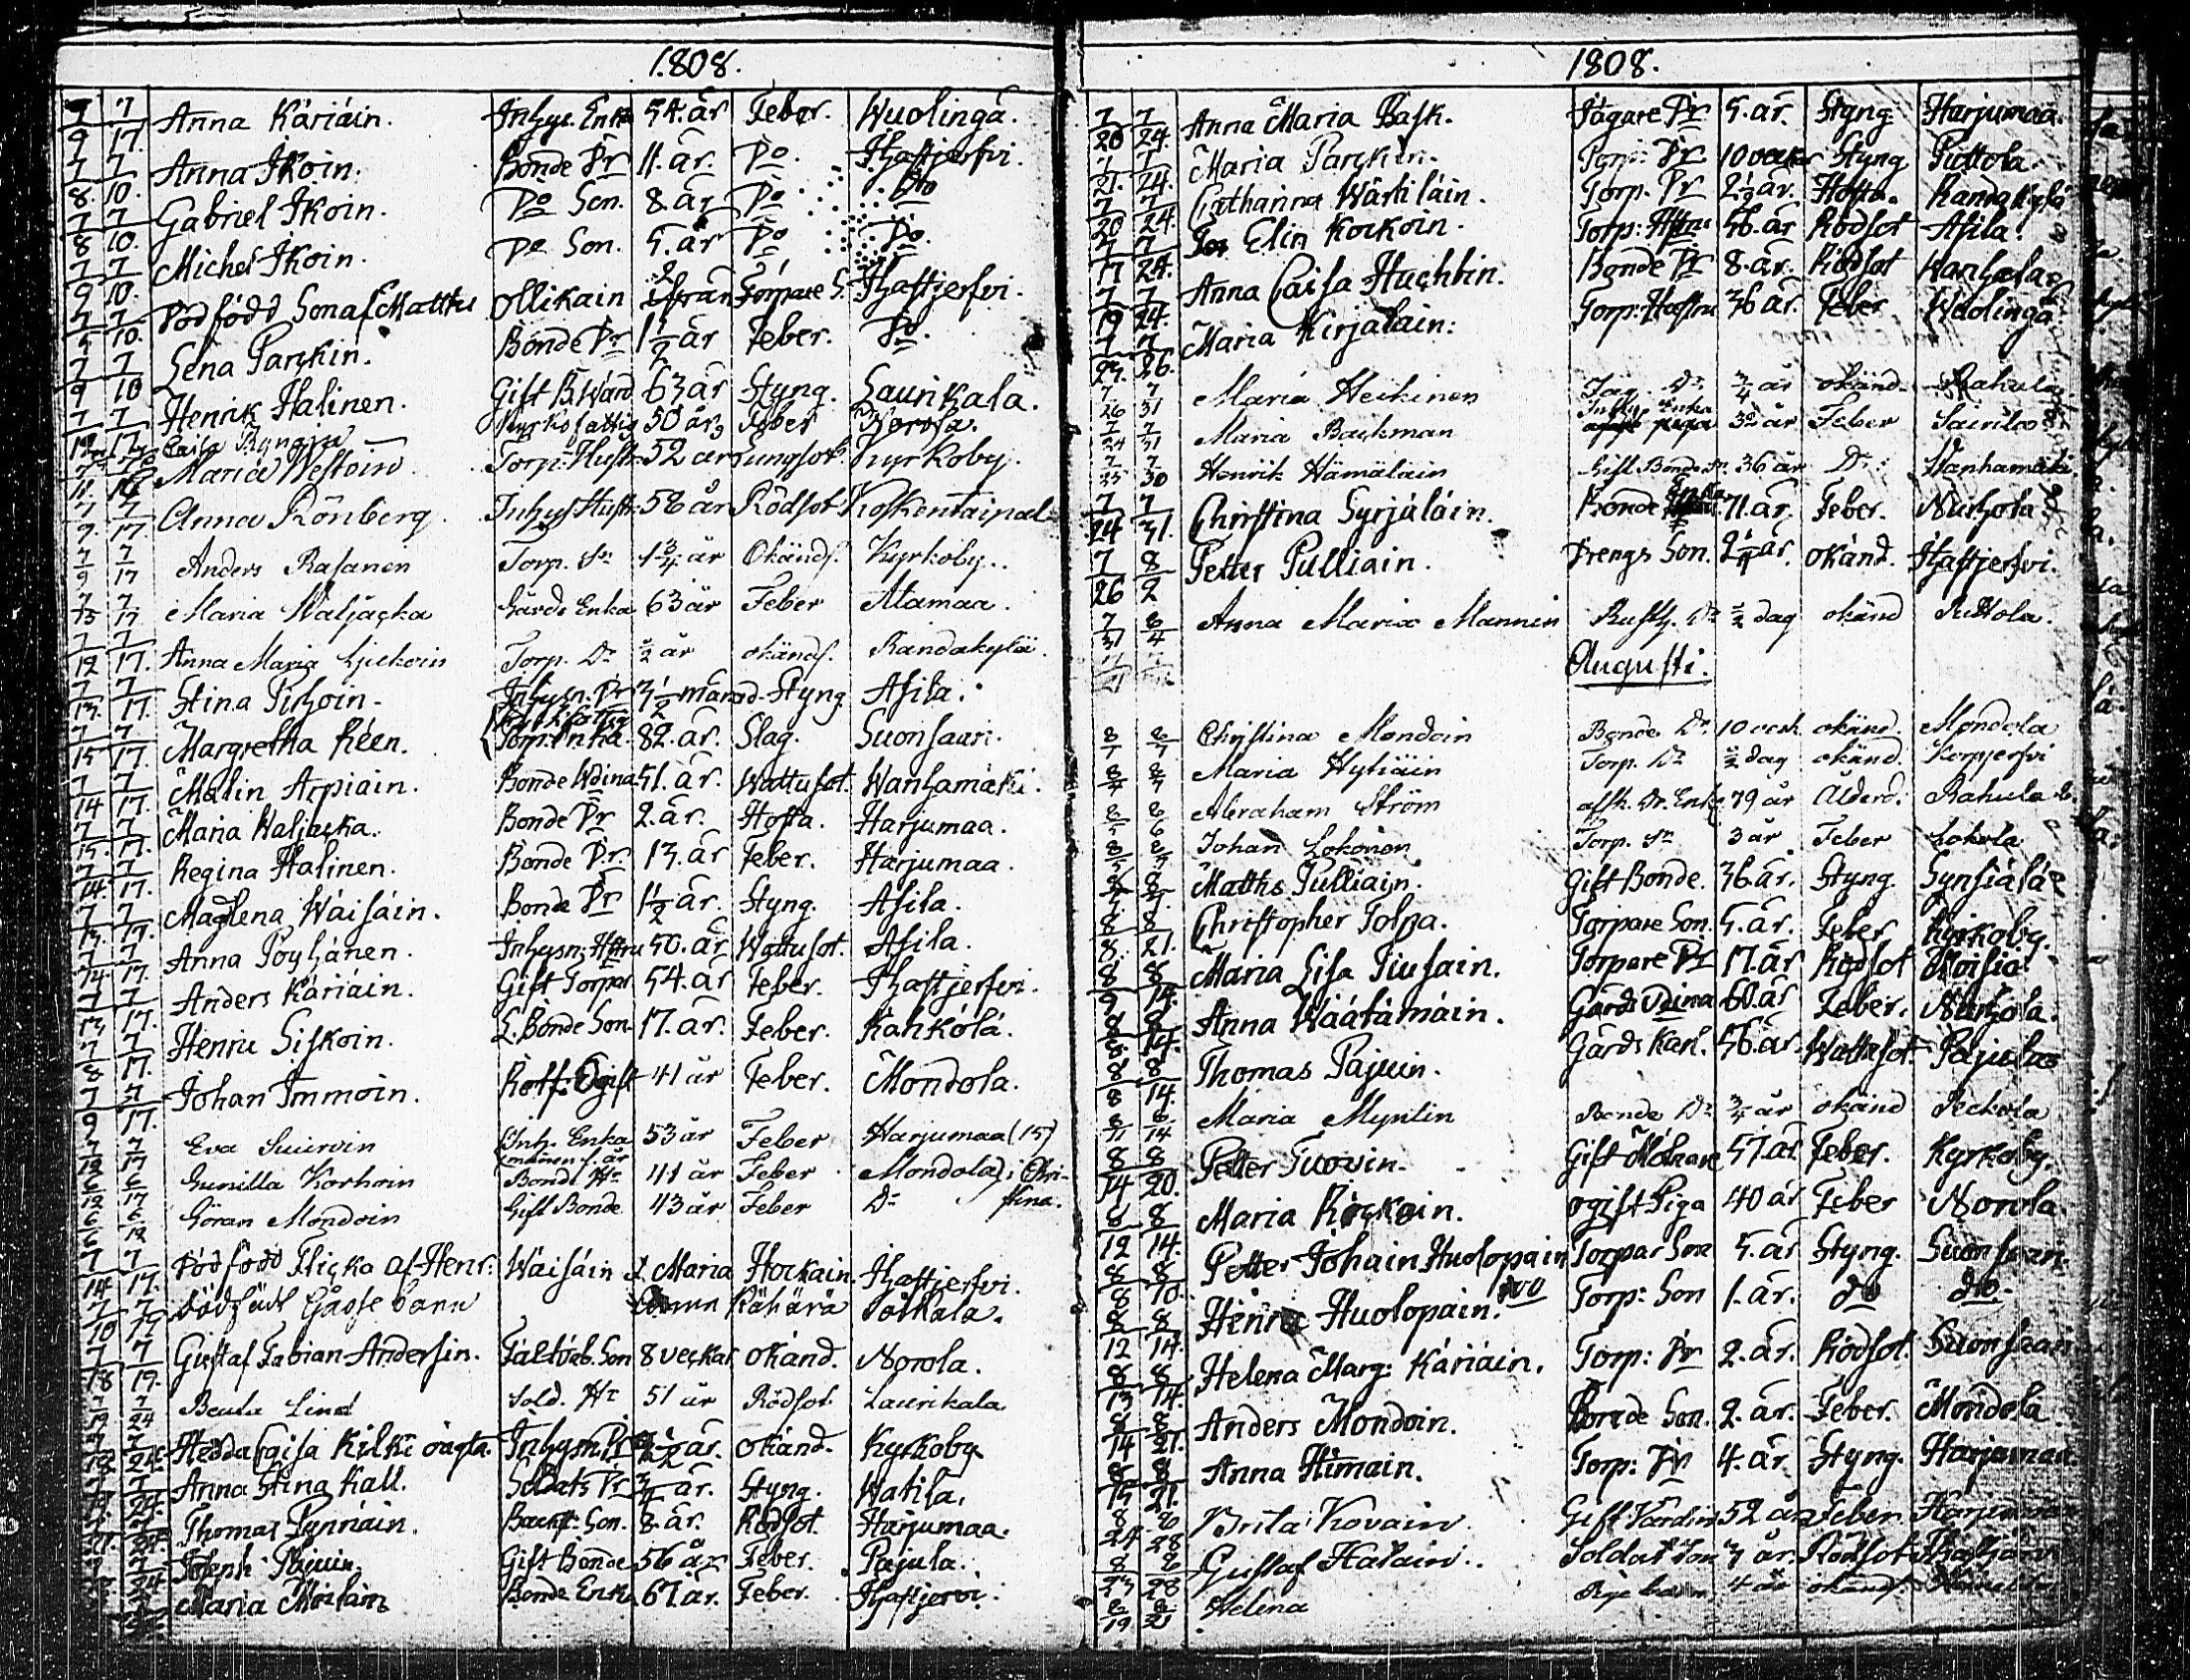 1808.
7/9 7/17. Anna Käriäin. Inhys. Enka 54. år Feber. Wuolinga.
7/8. 7/10. Anna Ikoin. Bonde Dr 11. år. Do. Ihastjerfvi.
7/8 7/10. Gabriel Ikoin. Do Son. 8. år Do Do
7/9 7/10. Michel Ikoin. Do Son. 5. år Do Do.
7/ 7/10. Dödfödd Son af Matths Ollikain Torpare S. Ihastjerfvi.
7/9 7/10 Lena Parckin. Bonde Dr 1 1/2 år Feber. Do.
7/ 7/ Henrik Halinen. Gift B. Wärd 63 år Styng. Laurikala.
Caisa Kyrkofattig 50 år Feber Norola.
7/11. 7/ Maria Westoin Torp. Hustr. 52 år Lungsot Kyrkoby.
7/9. 7/17. Anna Rönberg. Inhys Hustr. 58 år Rödsot Koskentaipal
7/9 7/17 Anders Rasanen Torp. Sn 1 3/4 år Okänd. Kyrkoby.
7/13 7/17 Maria Waljacka Gårds Enka 63 år Feber Alamaa.
7/12 7/17. Anna Maria Torp. Dr 1/2 år okänd. Randakylä.
7/13. 7/17. Stina Pihoin. Inhysn. Dr 3 1/2 månad Styng Asila.
7/15 7/17. Margretha Réen. Torp. Enka. 82. år. Slag. Suonsaari.
7/14 7/17. Malin Arpiain. Bonde Wdina 51. år. Wattusot. Wanhamäki.
7/15. 7/17. Maria Waljacka. Bonde Dr 2. år. Hosta. Harjumaa.
7/14. 7/17. Regina Halinen. Bonde Dr. 13. år Feber. Harjumaa.
7/13. 7/17. Magdlena Wäisäin. Bonde Dr 1 1/2 år. Styng. Asila.
7/14 7/17. Anna Pöyhänen. Inhysn: Hstru 50. år Wattusot. Asila.
7/13 7/17. Anders Käriäin. Gift Torpar 54. år Feber. Ihastjerfvi.
7/8 7/17. Henric Siskoin. L. Bonde Son 17. år. Feber. Kahkölä.
7/9 7/17. Johan Immoin. Rotf: Ogift 41 år Feber. Mondola.
7/12 7/17 Eva Suuroin Inh. Enka 53 år Feber Harjumaa (15)
6/12 6/17 Gunilla Korhoin Bonde Hu 41 år Feber Mondola i Chri-
6/6 6/12 Göran Mondoin Gift Bonde 43 år Feber Do stina.
7/14 7/17. Dödfödd Flicka af Henr: Wäisäin & Maria Hockain. Ihastjerfvi.
7/10 7/ dödfödt Gåsse barn Anna Kähärä
7/18 7/19. Gustaf Fabian Andersin. Fältväb. Son 8 veckar okänd. Norola.
7/ 7/24 Beata Lind Sold. Hu 51 år Rödsot Laurikala
7/ 7/24. Hedda Caisa Kilki oägta. Inhysn. Dr 1/2 år. okänd. Kyrkoby
7/ 7/24. Anna Stina Kall. Soldats Dr 3/4 år. Styng. Watila.
7/ 7/ Thomas Pynnäin. Backst: Son. 8. år. Rödsot. Harjumaa.
7/ 7/24. Joseph Pajuin Gift Bonde 56 år Feber. Pajula.
Maria Moilain Bonde Enka 67. år. Feber. Ihastjervi.
1808.
7/20 7/24. Anna Maria Bask. Jägare Dr 5. år. Styng. Harjumaa.
7/21. 7/24. Maria Parckin. Torp: Dr 10 veckor Styng Puttola.
7/20 7/24. Catharina Wärtiläin. Torp. Dr 2 1/2 år. Hosta. Randakylä
7/17 7/24. Elin Kockoin. Torp: Hstru 56. år Rödsot Asila.
7/19 7/24. Anna Caisa Huchtin. Bonde Dr 8. år. Rödsot Wanhala
7/23. 7/26. Maria Kirjalain. Torp: Hustru 36 år. Feber Wuolinga.
7/26 7/31 Maria Heikinen Jäg. Dr 3/4 år okänd. Rahula
7/24 7/31 Maria Backman Inhys Enka 32 år Feber Sairila
7/25 7/30 Henrik Hämäläin Gift Bonde Sn. 36 år Do. Wanhamäki
7/24 7/31. Christina Syrjäläin. Bonde Enka 71. år. Feber. Nuihola
7/26 8/2 Petter Pulliain. Drengs Son. 2 1/4 år. okänd. Ihastjerfvi.
7/31 8/4 Anna Maria Mannin Rusth. Dr 1/2 dag okänd Puttola.
Augusti.
8/1 8/7 Christina Mondoin Bonde Dr. 10 veck. okänd Mondola
8/4 8/7 Maria Hytiäin Torp. Dr 1/2 dag okänd. Korpjerfvi
8/5 8/6 Abraham Ström afsk. Dr. Enkl. 79 år Ålderd. Rahula
8/5 8/7 Johan Lokonen Torp. Sn 3 år Feber Lokola
8/ 8/ Matths Pulliain. Gift Bonde. 36. år. Styng. Synsiälä
8/8. 8/21. Christopher Tolpa. Torpare Son. 5. år. Feber Kyrkoby.
8/9 8/14. Maria Lisa Piusain. Torpare Dr 17. år Rödsot Koisia.
8/8 8/14. Anna Wäätämäin. Gårds Wdina 60. år Feber. Nuihola.
8/8 8/14. Thomas Pajuin. Gårds Karl. 56. år. Wattusot. Pajula
8/11 8/14 Maria Myntin Bonde Dr 3/4 år okänd Peckola
8/14 8/20. Petter Tuovin. Gift Mölnare 57. år Feber. Kyrkoby.
8/12 8/14. Maria Röckäin. ogift Piga 40 år Feber Norola.
8/8 8/10. Petter Johain Huolopain Torpar Son 5. år Styng. Suonsaari.
8/12 8/14. Henric Huolopain. Torp: Son 1. år. do do.
8/13 8/14. Helena Marg: Käriäin. Torp: Dr 2. år. Rödsot. Suonsaari
8/14 8/21. Anders Mondoin. Bonde Son. 2. år. Feber. Mondola.
8/15 8/21. Anna Himain. Torp: Dr 4. år Styng. Harjumaa.
8/24 8/28 Brita Kovain. Gift Värdin 52 år Feber Harjumaa
8/23 8/28 Gustaf Halain. Soldat Son 3 år. Rödsot
8/19 8/21 Helena 4 år okänd.